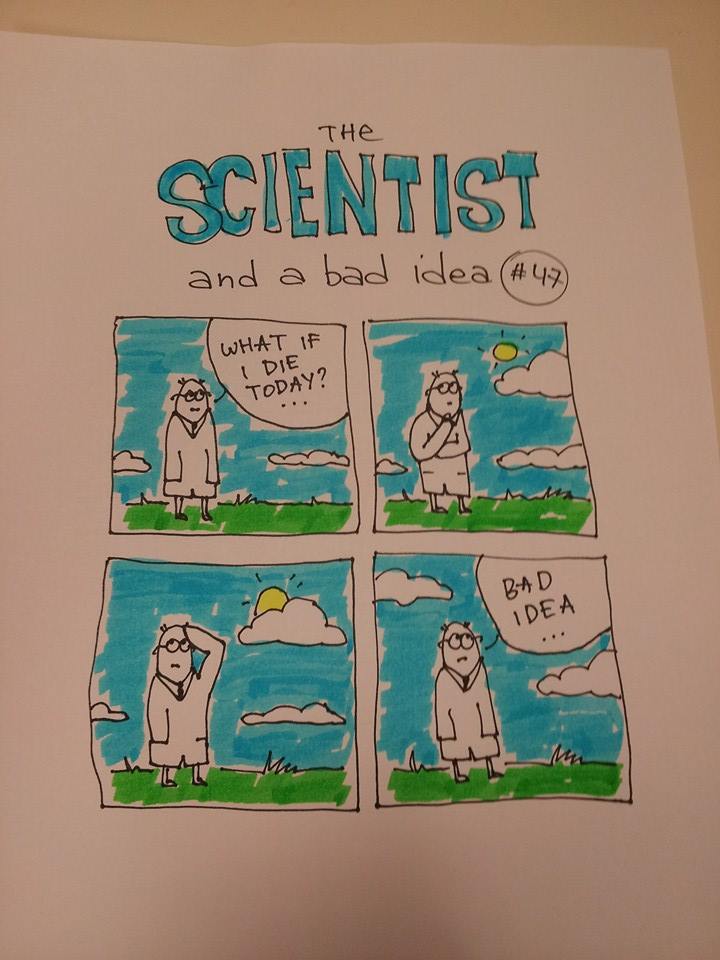 THE
SCIENTIST
and a bad idea #47
WHAT IF
I DIE
TODAY?
...
BAD
IDEA
...